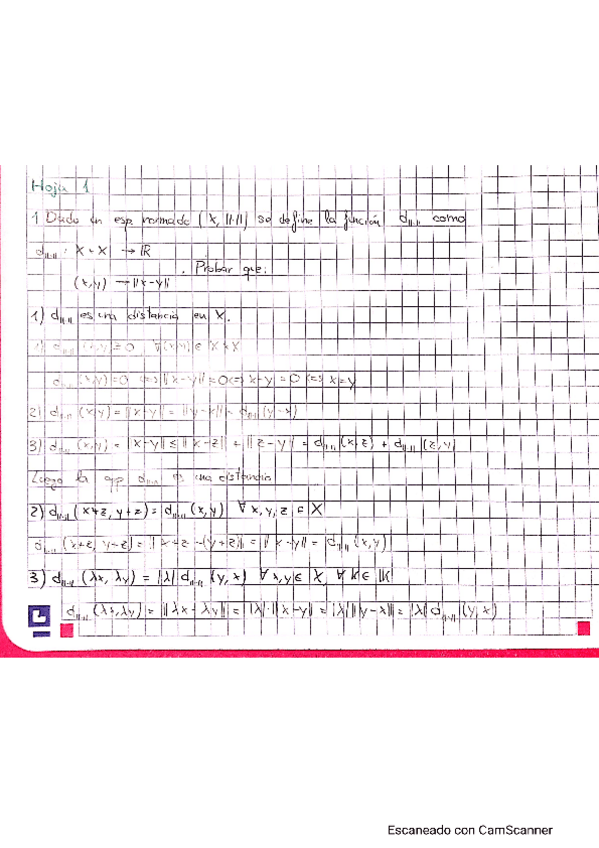 Hoja 1
1 Dado un esp. normado (X, ||·||) se define la función d||·|| como
d||·|| : X × X → ℝ
(x,y) → ||x-y|| . Probar que:
1) d||·|| es una distancia en X.
1) d||·|| (x,y) ≥ 0 ∀(x,y) ∈ X × X
d||·|| (x,y) = 0 ⟺ ||x-y|| = 0 ⟺ x-y = 0 ⟺ x=y
2) d||·|| (x,y) = ||x-y|| = ||y-x|| = d||·|| (y-x)
3) d||·|| (x,y) = ||x-y|| ≤ ||x-z|| + ||z-y|| = d||·|| (x,z) + d||·|| (z,y)
Luego la app d||·|| es una distancia
2) d||·|| (x+z, y+z) = d||·|| (x,y) ∀ x,y,z ∈ X
d||·|| (x+z, y+z) = ||x+z-(y+z)|| = ||x-y|| = d||·|| (x,y)
3) d||·|| (λx, λy) = |λ| d||·|| (y,x) ∀ x,y ∈ X, ∀ k ∈ 𝕂
d||·|| (λx,λy) = ||λx-λy|| = |λ|·||x-y|| = |λ| ||y-x|| = |λ| d||·|| (y,x)
Escaneado con CamScanner